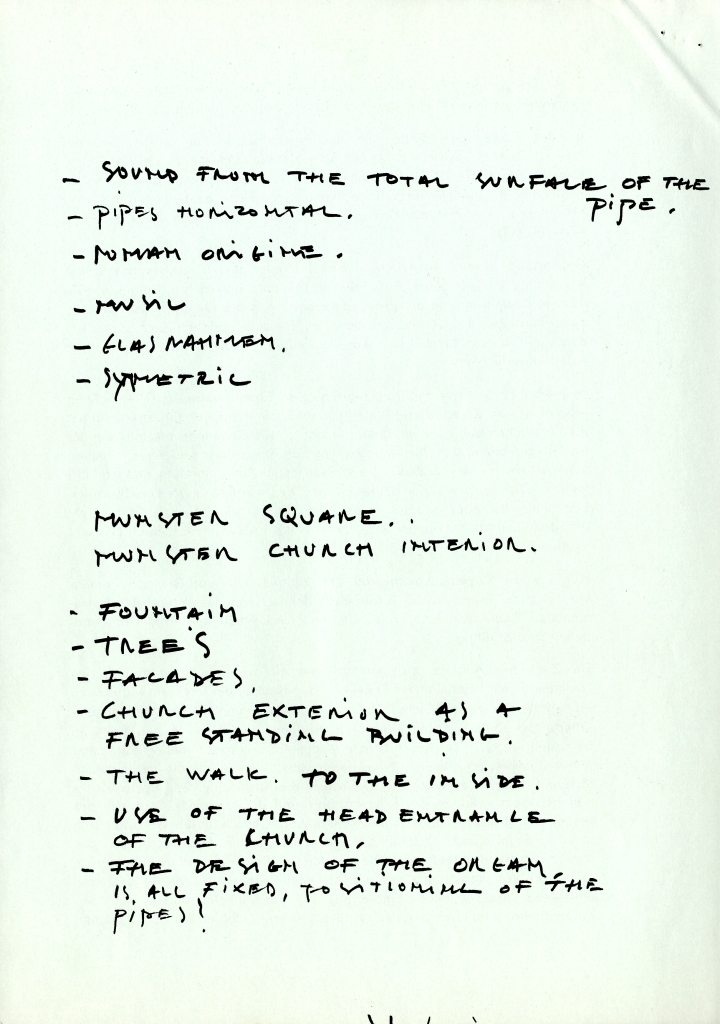 - SOUND FROM THE TOTAL SURFACE OF THE
PIPE.
- PIPES HORIZONTAL.
- ROMAN ORIGINE.
- MUSIC
- GLASRAHMEN.
- SYMETRIC
MUNSTER SQUARE..
MUNSTER CHURCH INTERIOR.
- FOUNTAIN
- TREES
- FACADES.
- CHURCH EXTERIOR AS A
FREE STANDING BUILDING.
- THE WALK. TO THE INSIDE.
- USE OF THE HEAD ENTRANCE
OF THE CHURCH,
- THE DESIGN OF THE ORGAN,
IS ALL FIXED, POSITIONING OF THE
PIPES!